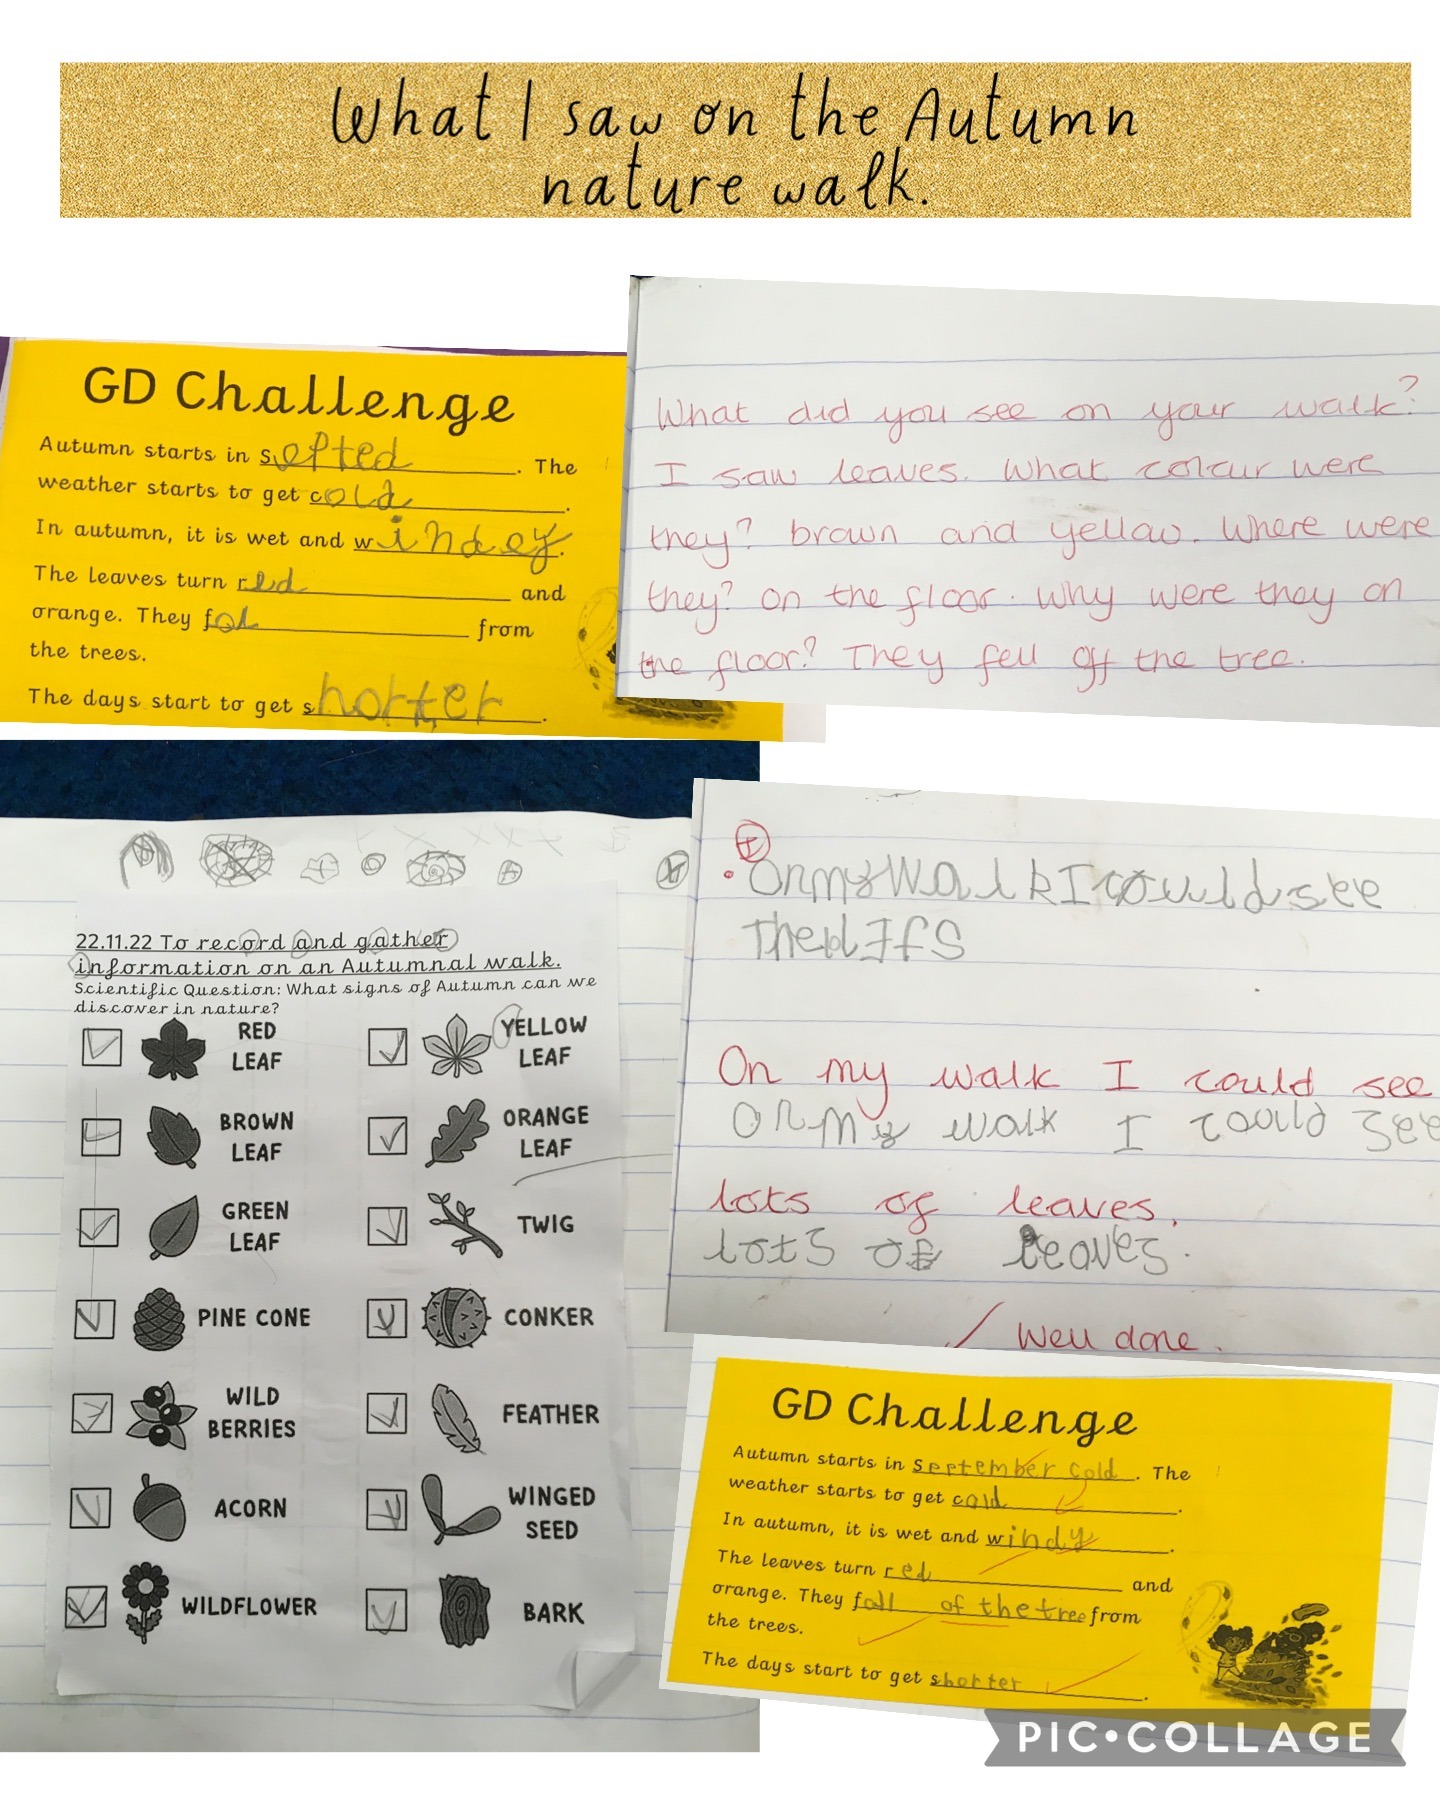 What I saw on the Autumn
nature walk.
GD Challenge
Autumn starts in sefted. The
weather starts to get cold.
In autumn, it is wet and windey.
The leaves turn red and
orange. They fol from
the trees.
The days start to get shorter.
What did you see on your walk?
I saw leaves. What colour were
they? brown and yellow. Where were
they? on the floor. Why were they on
the floor? They fell off the tree.
22.11.22 To record and gather
information on an Autumnal walk.
Scientific Question: What signs of Autumn can we
discover in nature?
RED
LEAF
YELLOW
LEAF
BROWN
LEAF
ORANGE
LEAF
GREEN
LEAF
TWIG
PINE CONE
CONKER
WILD
BERRIES
FEATHER
ACORN
WINGED
SEED
WILDFLOWER
BARK
On my Walk I could see
The
On my walk I could see
On my walk I could see
lots of leaves.
lots of leaves.
Well done.
GD Challenge
Autumn starts in september cold. The
weather starts to get cold.
In autumn, it is wet and windy.
The leaves turn red and
orange. They fall of the tree from
the trees.
The days start to get shorter.
PIC•COLLAGE